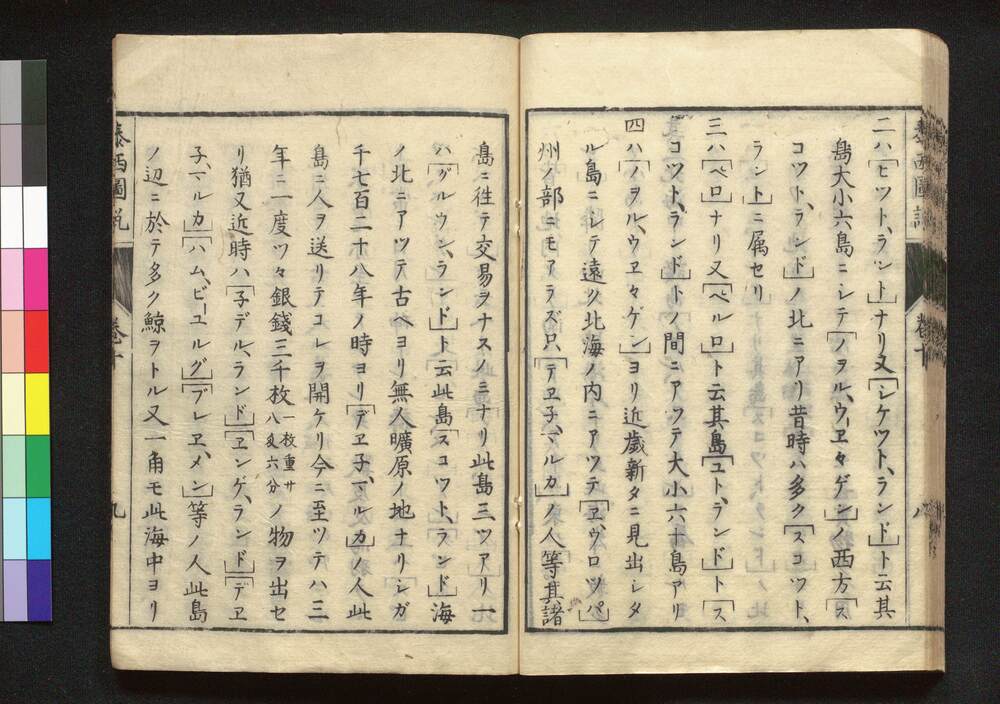 二ハ「ヒツト、ラント」ナリ又「シケツト、ランド」ト云其
島大小六島ニシテ「ノヲル、ウヱヽゲン」ノ西方「ス
コツト、ランド」ノ北ニアリ昔時ハ多ク「スコツト、
ラント」ニ属セリ
三ハ「ベロ」ナリ又「ベルロ」ト云其島「ユト、ランド」ト「ス
コツト、ランド」トノ間ニアツテ大小六十島アリ
四ハ「ノヲル、ウヱヽゲン」ヨリ近歳新タニ見出シタ
ル島ニシテ遠ク北海ノ内ニアツテ「ヱウロツパ」
州ノ部ニモアラズ只「デヱ子マルカ」ノ人等其諸
島ニ往テ交易ヲナスノミナリ此島三ツアリ一
ハ「グルウン、ランド」ト云此島「スコツト、ランド」海
ノ北ニアツテ古ヘヨリ無人曠原ノ地ナリシガ
千七百二十八年ノ時ヨリ「デヱ子マルカ」ノ人此
島ニ人ヲ送リテコレヲ開ケリ今ニ至ツテハ三
年ニ一度ツヽ銀錢三千枚一枚重サ八匁六分ノ物ヲ出セ
リ猶又近時ハ「子デル、ランド」「ヱンゲ、ランド」「デヱ
子マルカ」「ハム、ビーユルグ」「ブレヱメン」等ノ人此島
ノ辺ニ於テ多ク鯨ヲトル又一角モ此海中ヨリ
泰西圖説
卷十
八
泰西圖説
卷十
九